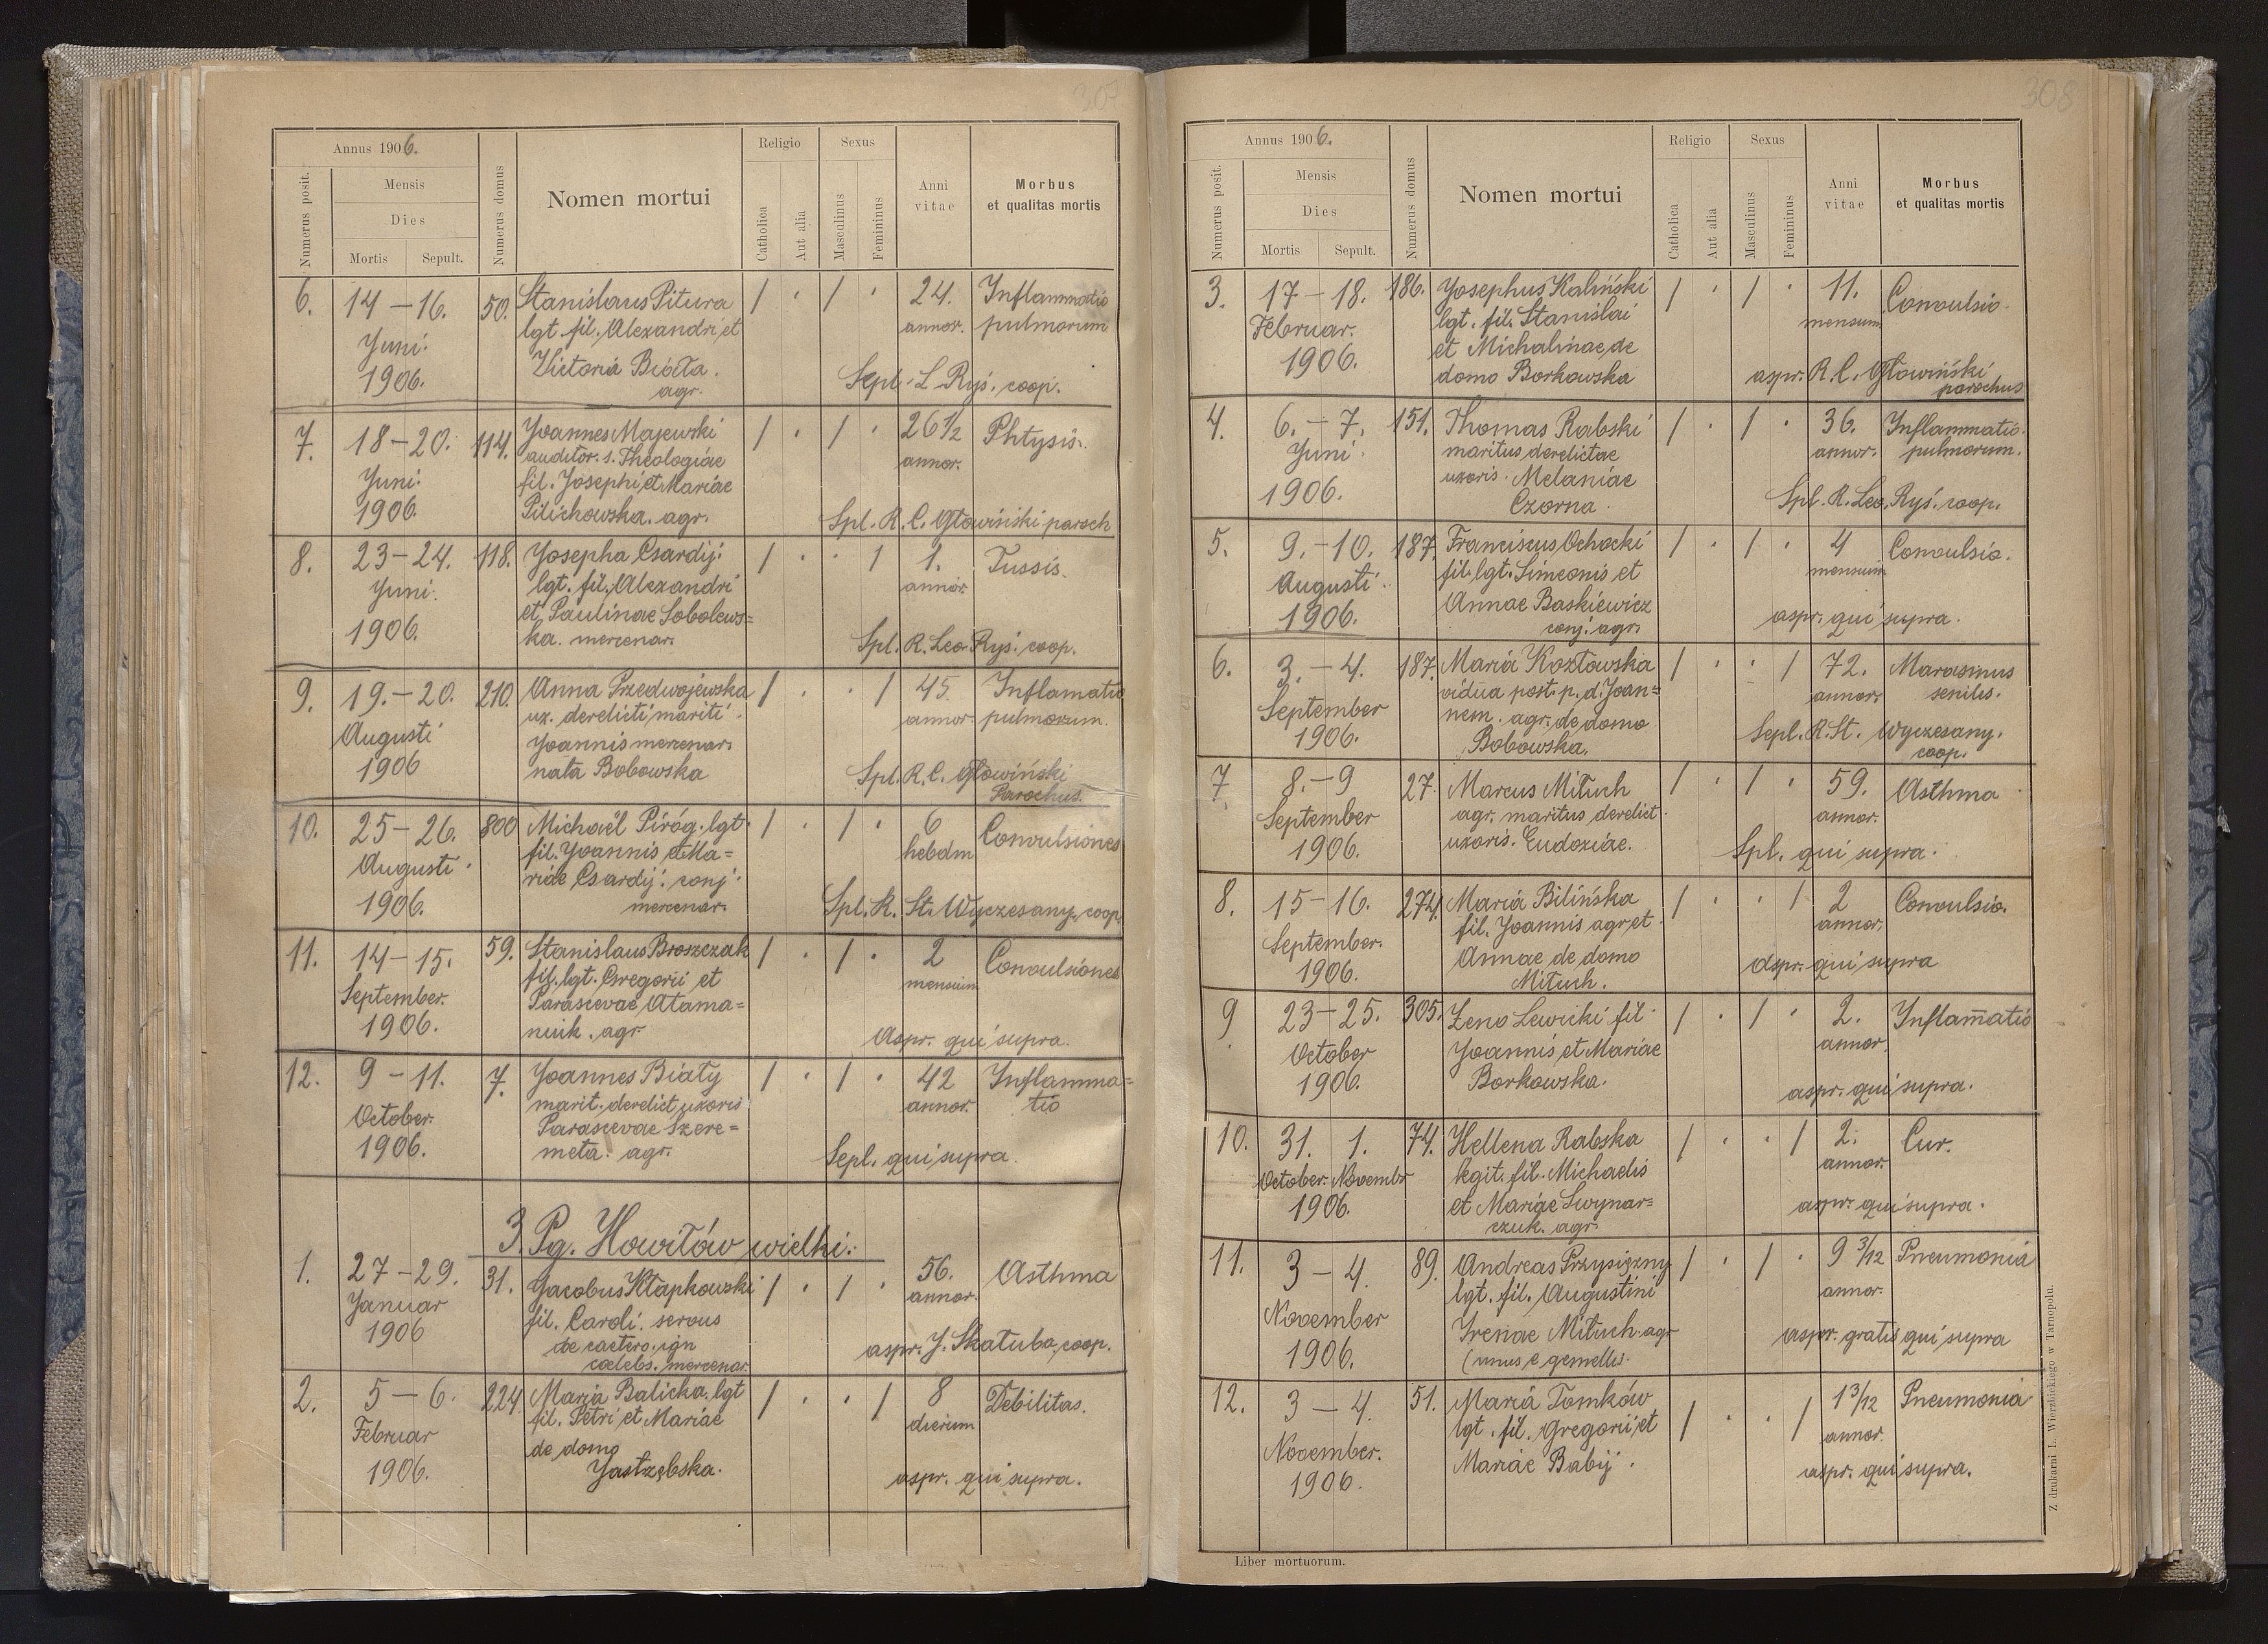 307
Annus 1906.
Numerus posit.
Mensis
Dies
Mortis Sepult.
Numerus domus
Nomen mortui
Religio
Catholica
Aut alia
Sexus
Masculinus
Femininus
Anni
vitae
Morbus
et qualitas mortis
6. 14 – 16. 50. Stanislaus Pitura / · / · 24. Inflammatio
lgt. fil. Alexandri et annor. pulmorum
Juni.
Victoria Biała.
1906. agr. Sepl. L Ryś. coop.
7. 18 – 20. 114. Joannes Majewski / · / · 26 1/2 Phtysis.
auditor. s. Theologiae annor.
Juni. fil. Josephi et Mariae
1906. Pilichowska. agr. Spl. R. C. Głowiński paroch
8. 23 – 24. 118. Josepha Csardij. / · · / 1. Tussis.
Juni. lgt. fil. Alexandri annor
et Paulinae Sobolews=
1906. ka. mercenar. Spl. R. Leo Ryś. coop.
9. 19. – 20. 210. Anna Przedwojewska / · · / 45. Inflamatio
ux. derelicti mariti annor. pulmorum.
Augusti Joannis mercenar.
1906 nata Bobowska Spl. R. C. Głowiński
Parochus.
10. 25 – 26. 800 Michaël Piróg. lgt. / · / · 6 Convulsiones
fil. Joannis et Ma= hebdm
Augusti riae Csardij. conj.
1906. mercenar. Spl. R. St. Wyczesany, coop.
11. 14 – 15. 59. Stanislaus Broszczak / · / · 2 Convulsiones
fil. lgt. Gregorii et mensium
September. Parascevae Atama=
1906. niuk. agr Aspr. qui supra.
12. 9 – 11. 7. Joannes Biały / · / · 42 Inflamma=
marit. derelict uxoris annor. tio
October. Parascevae Szere=
1906. meta. agr. Sepl. qui supra.
3. Pg. Howiłów wielki.
1. 27 – 29. 31. Jacobus Kłapkowski / · / · 56. Asthma
Januar fil. Caroli. servus annor.
1906 de caetero. ign aspr. J. Skałuba, coop.
caelebs. mercenar.
2. 5 – 6. 224. Maria Balicka. lgt / · · / 8 Debilitas.
fil. Petri et Mariae dierum
Februar de domo
1906. Jastrzębska. aspr. qui supra.
308
Annus 1906.
Numerus posit.
Mensis
Dies
Mortis Sepult.
Numerus domus
Nomen mortui
Religio
Catholica
Aut alia
Sexus
Masculinus
Femininus
Anni
vitae
Morbus
et qualitas mortis
3. 17 – 18. 186. Josephus Kaliński / · / · 11. Convulsio.
Februar. lgt. fil. Stanislai mensium
et Michalinae, de
1906. domo Borkowska aspr. R. C. Głowiński
parochus
4. 6. – 7. 151. Thomas Rabski / · / · 36. Inflammatio.
Juni. maritus derelictae annor. pulmorum.
uxoris. Melaniae
1906. Czorna. Spl. R. Leo. Ryś. coop.
5. 9. – 10. 187. Franciscus Ochocki / · / · 4 Convulsio.
Augusti. fil. lgt. Simeonis et mensium
Annae Baskiewicz
1906. conj. agr. aspr. qui supra.
6. 3. – 4. 187. Maria Kozłowska / · · / 72. Marasmus
vidua post. p. d. Joan= annor. senilis.
September nem. agr. de domo
1906. Bobowska. Sepl. R. St. Wyczesany.
coop.
7. 8. – 9 27. Marcus Mituch / · / · 59. Asthma
September agr. maritus derelict. annor.
1906. uxoris. Eudoxiae. Spl. qui supra.
8. 15 – 16. 274. Maria Bilińska / · · / 2 Convulsio.
fil. Joannis agr et annor.
September. Annae de domo
1906. Mituch. aspr. qui supra
9. 23 – 25. 305. Zeno Lewicki fil. / · / · 2. Inflam̄atio
October Joannis et Mariae annor.
1906. Borkowska. aspr. qui supra.
10. 31. 1. 74. Hellena Rabska / · · / 2. Cur.
October. Novembr legit. fil. Michaelis annor.
1906. et Mariae Swynar= aspr. qui supra.
czuk. agr.
11. 3 – 4. 89. Andreas Przysiężny / · / · 9 3/12 Pneumonia
lgt. fil. Augustini annor.
November Irenae Mituch. agr aspr. gratis qui supra
1906. (unus e gemellis.
12. 3 – 4. 51. Maria Tomków / · · / 1 3/12 Pneumonia
lgt. fil. Gregorii et annor.
November. Mariae Babij. aspr. qui supra.
1906.
Liber mortuorum.
Z drukarni L. Wierzbickiego w Tarnopolu.